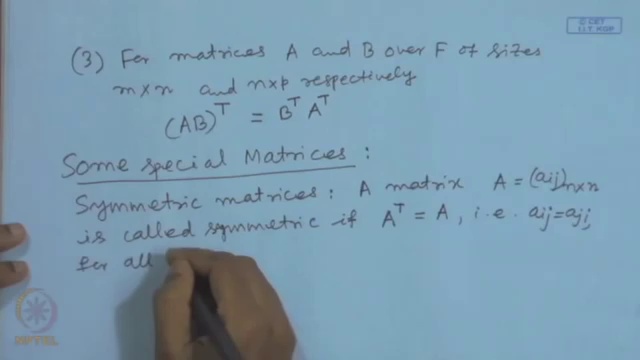 © CET
I.I.T. KGP
(3) For matrices A and B over F of sizes
m×n and n×p respectively
(AB)ᵀ = Bᵀ Aᵀ
Some special Matrices :
Symmetric matrices : A matrix A = (aij)n×n
is called symmetric if Aᵀ = A, i.e. aij = aji,
for all
NPTEL